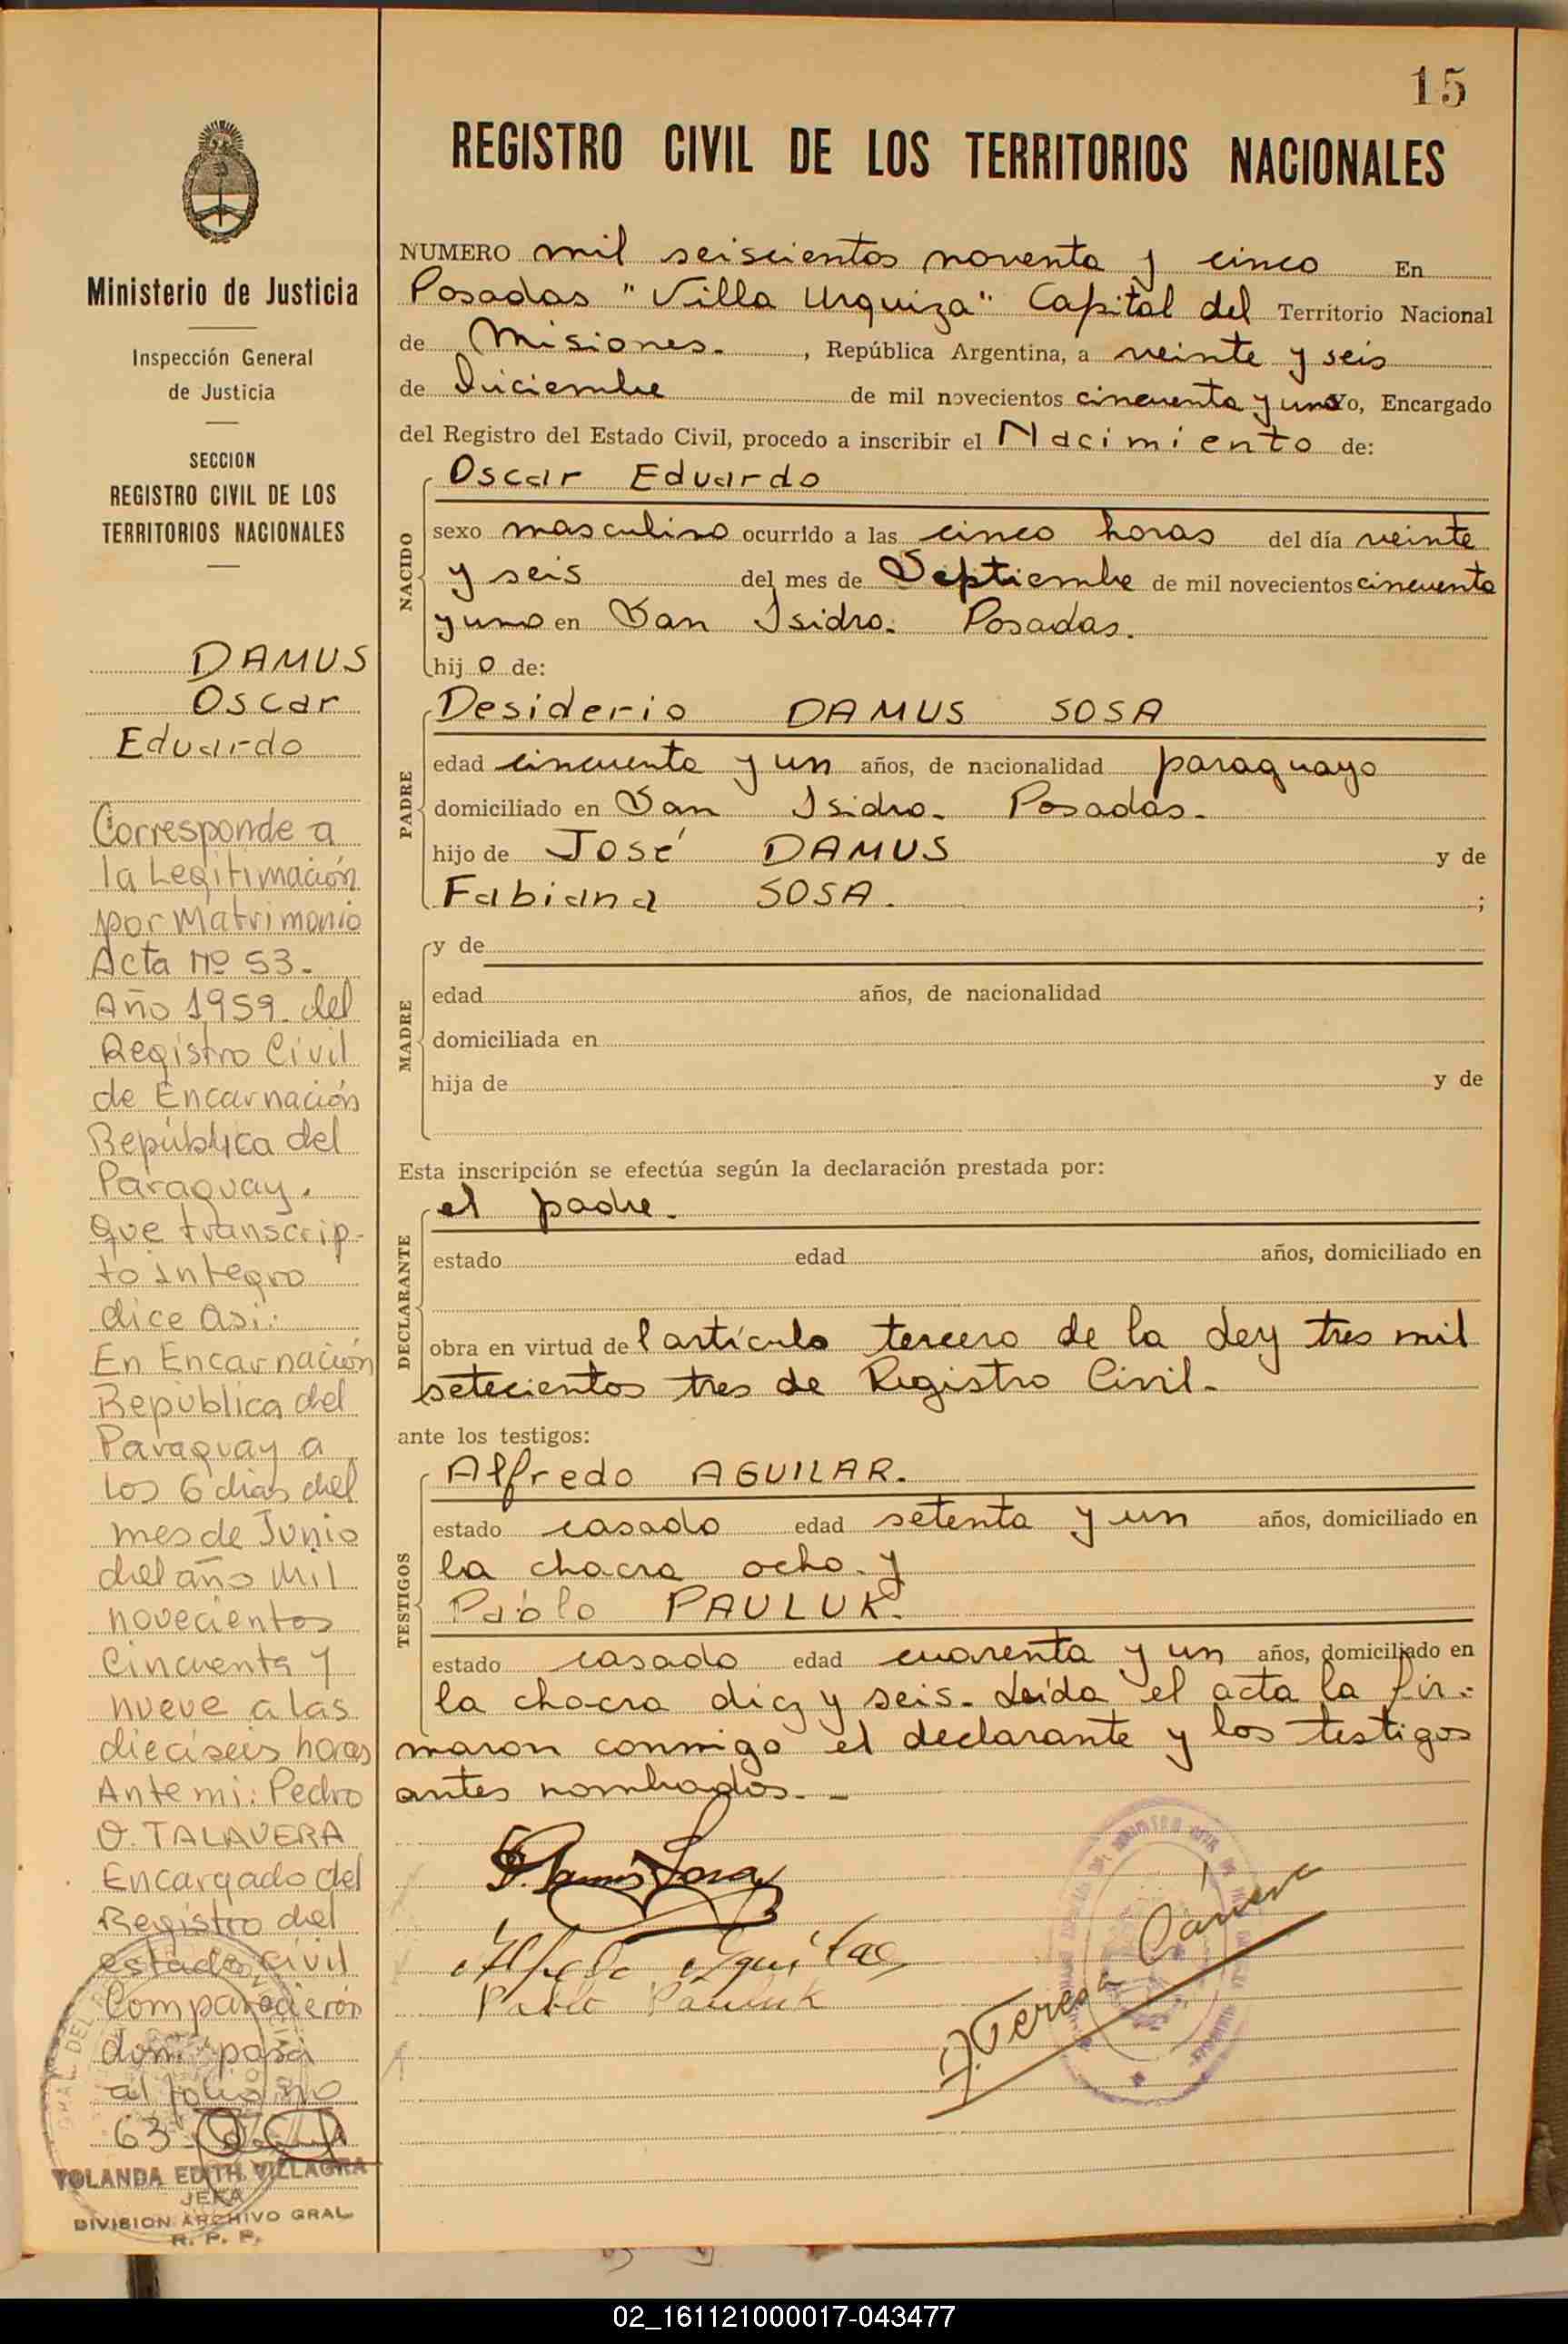 15
REGISTRO CIVIL DE LOS TERRITORIOS NACIONALES
Ministerio de Justicia
Inspección General
de Justicia
SECCION
REGISTRO CIVIL DE LOS
TERRITORIOS NACIONALES
DAMUS
Oscar
Eduardo
Corresponde a
la Legitimación
por Matrimonio
Acta Nº 53.
Año 1959. del
Registro Civil
de Encarnación
República del
Paraguay.
Que transcrip-
to integro
dice asi:
En Encarnación
República del
Paraguay a
los 6 dias del
mes de Junio
del año mil
novecientos
Cincuenta y
nueve a las
dieciseis horas
Ante mi: Pedro
O. TALAVERA
Encargado del
Registro del
estado civil
Comparecieron
don: pasa
al folio no
63
YOLANDA EDITH VILLAGRA
JEFA
DIVISION ARCHIVO GRAL
R. P. P.
NUMERO mil seiscientos noventa y cinco En
Posadas "Villa Urquiza" Capital del Territorio Nacional
de Misiones. , República Argentina, a veinte y seis
de Diciembre de mil novecientos cincuenta y uno Yo, Encargado
del Registro del Estado Civil, procedo a inscribir el Nacimiento de:
NACIDO
Oscar Eduardo
sexo masculino ocurrido a las cinco horas del día veinte
y seis del mes de Septiembre de mil novecientos cincuenta
y uno en San Isidro. Posadas.
hij o de:
PADRE
Desiderio DAMUS SOSA
edad cincuenta y un años, de nacionalidad paraguayo
domiciliado en San Isidro. Posadas.
hijo de José DAMUS y de
Fabiana SOSA. ;
MADRE
y de
edad años, de nacionalidad
domiciliada en
hija de y de
Esta inscripción se efectúa según la declaración prestada por:
DECLARANTE
el padre.
estado edad años, domiciliado en
obra en virtud de l artículo tercero de la Ley tres mil
setecientos tres de Registro Civil.
ante los testigos:
TESTIGOS
Alfredo AGUILAR.
estado casado edad setenta y un años, domiciliado en
la chacra ocho. y
Pablo PAULUK.
estado casado edad cuarenta y un años, domiciliado en
la chacra diez y seis. Leída el acta la fir-
maron conmigo el declarante y los testigos
antes nombrados.
D. Damus Sosa
Alfredo Aguilar
Pablo Pauluk
Teresa
02_161121000017-043477